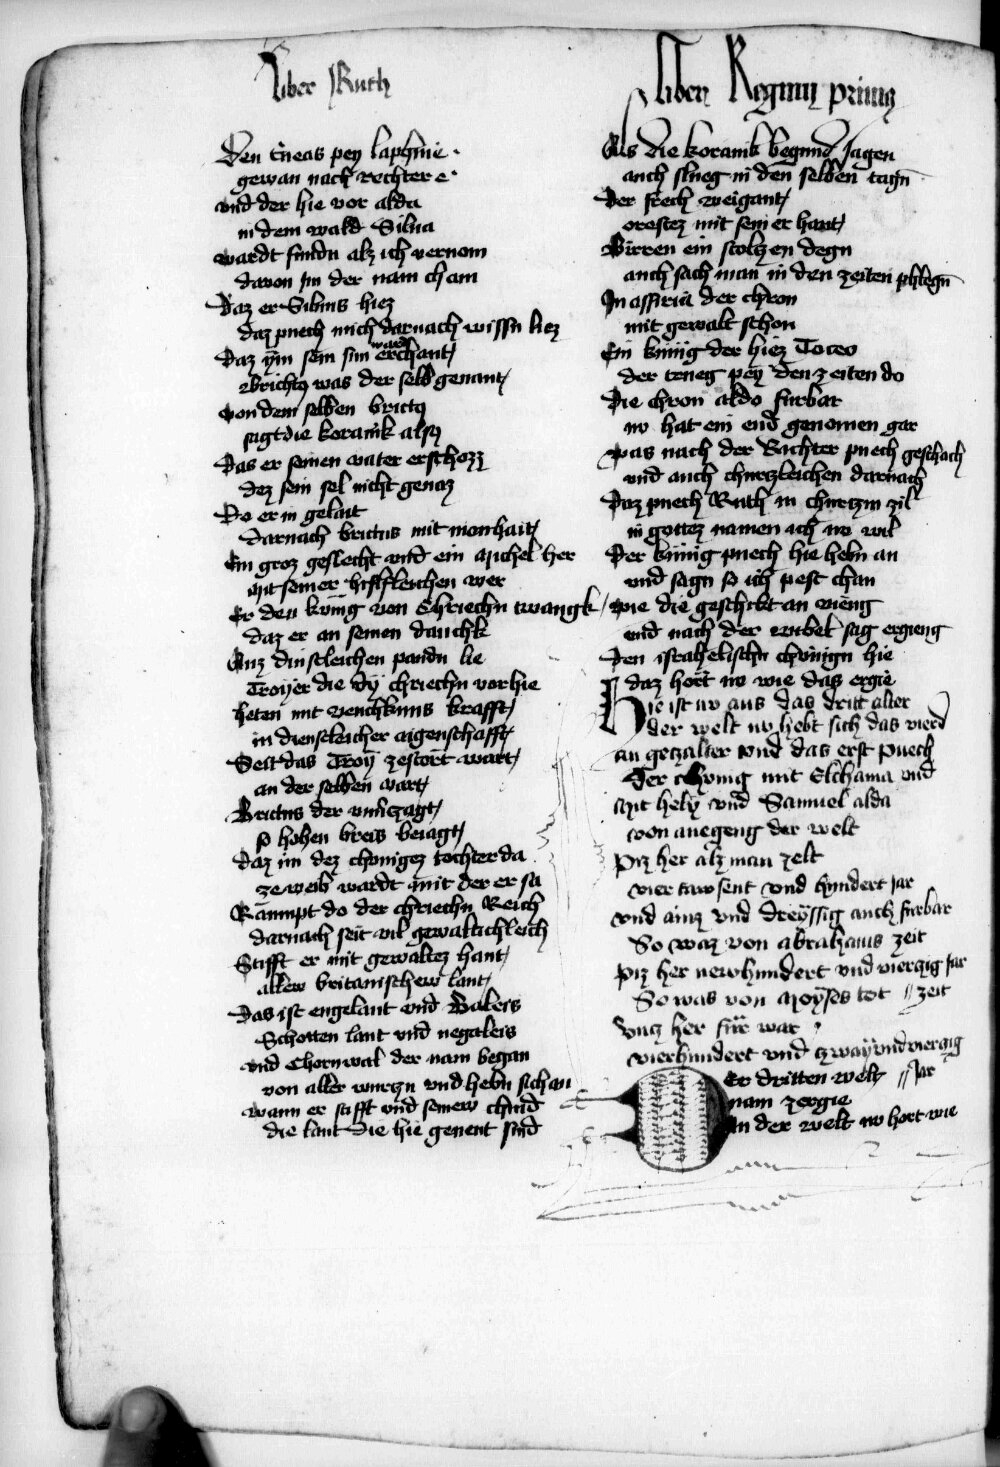 Liber Ruth
Den Eneas pey laphinie
gewan nach rechter e
vnd der hie vor alda
in dem wald Silua
wardt fundn alz ich vernom
davon im der nam cham
Daz er Siluius hiez
daz puech mich darnach wissn liez
Daz ym sein sun ward erchant
Britto was der selb genant
von dem selben britto
sagt die koranik also
Das er seinen vater erschozz
dez sein sel nicht genoz
Do er in gelait
darnach brittus mit monhait
Ein groz geslecht vnd ein michel her
mit seiner hilffleichen wer
Er den kunig von Chriechn twangk
daz er an seinen danchk
Auz dinstleichen pandn lie
Troyer die dy chriechn vor hie
heten mit venchknus krafft
in dienstleicher aigenschafft
Seit das Troy zestort wart
an der selben vart
Brittus der vnuerzagt
so hohen breis beiagt
Daz im dez chuniges tochter da
ze weib wardt mit der er sa
Raumpt do der chriechn Reich
darnach seit vil gewaltichleich
Stifft er mit gewaltez hant
allew britanischew lant
Das ist engelant vnd Valeis
Schotten lant vnd negaleis
vnd Chornwal der nam began
von aller wurtzn vnd hebn sich an
wann er stifft vnd seinew chind
die lant die hie genent sind
Liber Regum primus
Als die koranik begund sagen
auch slueg in den selben tagn
Der frech weigant
orestez mit seiner hant
Pirren ein stoltzen degn
auch sach man in den zeiten phlegn
In assiria der chron
mit gewalt schon
Ein kunig der hiez Toteo
der trueg pey den zeiten do
Die chron aldo furbar
nv hat ein end genomen gar
was nach der Rachter puech geschach
vnd auch churtzleichen darnach
Daz puech Ruth in churtzm zil
in gottez namen ich nv wil
Der kunig puech hie hebn an
vnd sagn so ich pest chan
wie die geschikt an vieng
vnd nach der wibel sag ergieng
Den israhelischn chunign hie
daz hort nv wie das ergie
Hie ist nv aus das dritt alter
der welt nv hebt sich das vierd
an getzalter vnd das erst puech
Der chunig mit Elchana vnd
Mit hely vnd Samuel alda
von anegeng der welt
piz her alz man zelt
vier tawsent vnd hundert jar
vnd ainz vnd dreyssig auch furbar
So waz von abrahams zeit
piz her newhundert vnd viertzig jar
So was von Moyses tot // zeit
vntz her fur war
vierhundert vnd tzway vnd viertzig
// Jar
Er dritten welt
nam zergie
In der welt nv hort wie